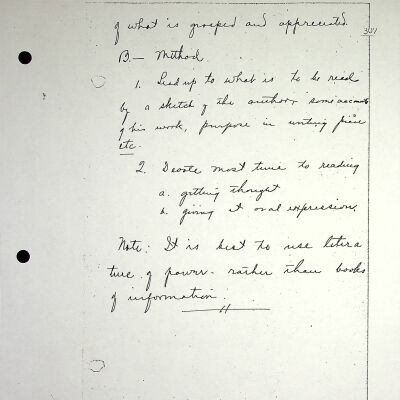 of what is grasped and appreciated.
B. — Method.
1. Lead up to what is to be read
by a sketch of the author, some account
of his work, purpose in writing piece
etc.
2. Devote most time to reading
a. getting thought
b. giving it oral expression.
Note: It is best to use litera
ture of power - rather than books
of information.